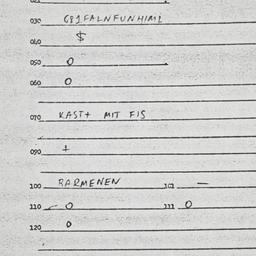 030 681FALNFUNHIMI
040 $
050 0
060 0
070 KAST+ MIT FIS
090 +
100 BARMENEN 101 —
110 0 111 0
120 0